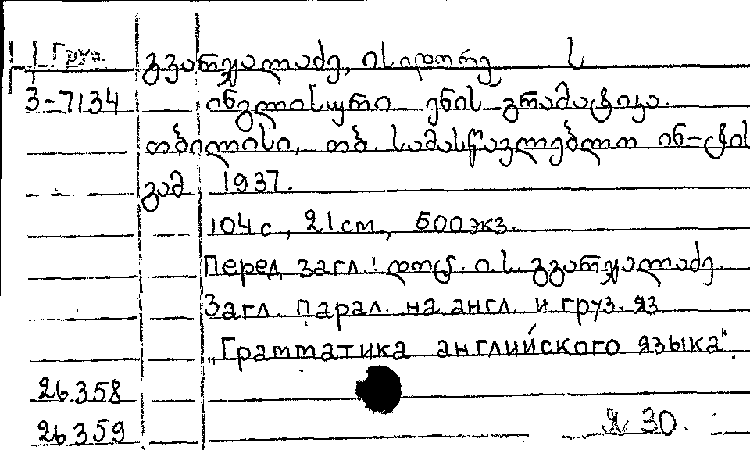 Груз. გვარჯალაძე, ისიდორე ს
3-7134 ინგლისური ენის გრამატიკა.
თბილისი, თბ. სამასწავლებლო ინ-ტის
გამ 1937.
104 с, 21 cm, 500 экз.
Перед загл: დოც. ის. გვარჯალაძე.
Загл. парал. на англ. и груз. яз
„Грамматика английского языка".
26.358
26.359 30.